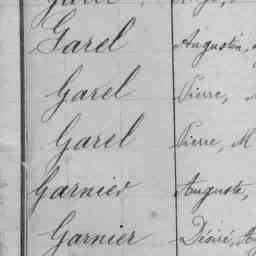 Garel Augustin,
Garel Pierre,
Garel Pierre, M
Garnier Auguste,
Garnier Désiré, A